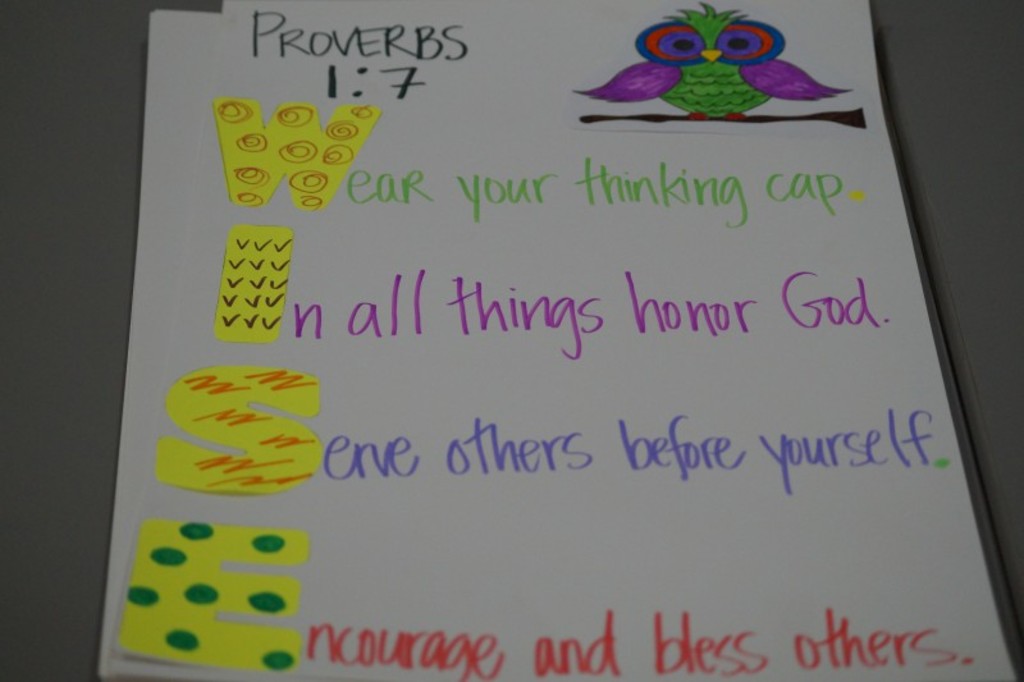 PROVERBS
1:7
Wear your thinking cap.
In all things honor God.
Serve others before yourself.
Encourage and bless others.